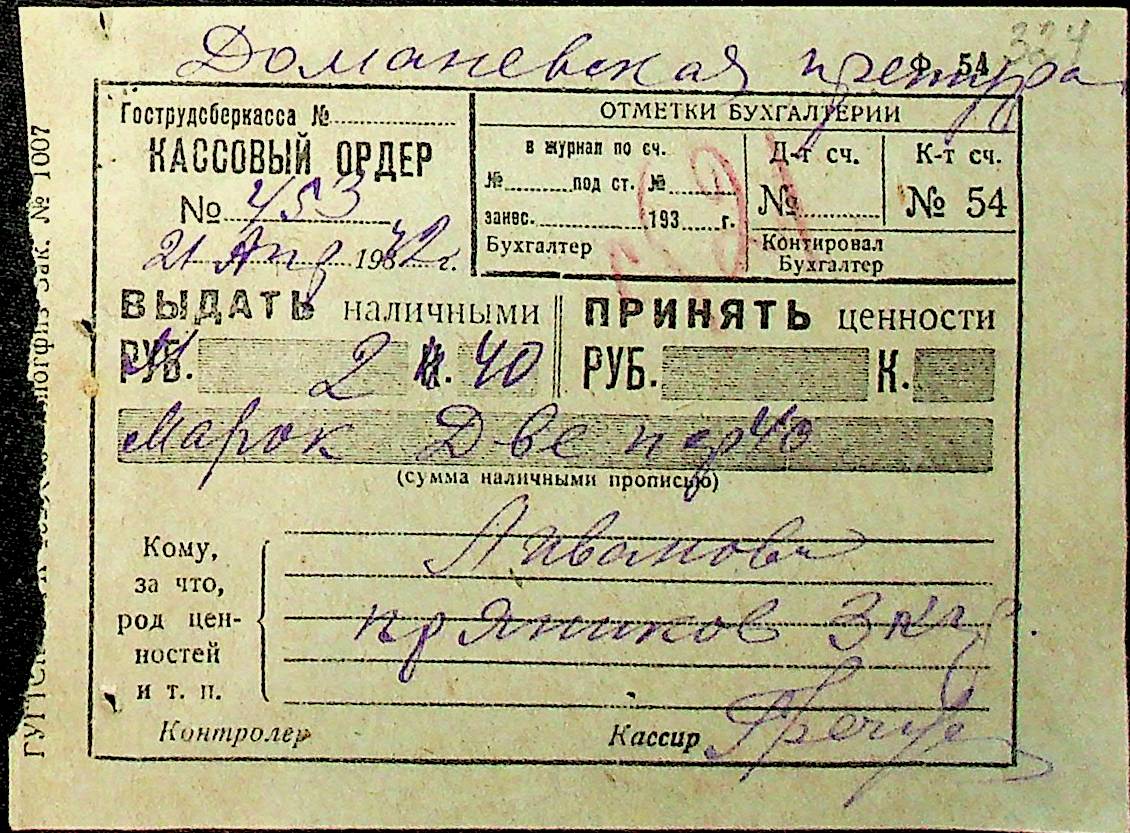 324
Доманевская претура
Ф. 54
Гострудсберкасса №
КАССОВЫЙ ОРДЕР
№ 453
21 Апр 1942 г.
ОТМЕТКИ БУХГАЛТЕРИИ
в журнал по сч.
№ под ст. №
занес. 193 г.
Бухгалтер
Д-т сч.
№
К-т сч.
№ 54
Контировал
Бухгалтер
ВЫДАТЬ наличными
РУБ. 2 К. 40
ПРИНЯТЬ ценности
РУБ. К.
Марок Две пф 40
(сумма наличными прописью)
Кому,
за что,
род цен-
ностей
и т. п.
пряников 3
Контролер
Кассир
Зак. № 1007